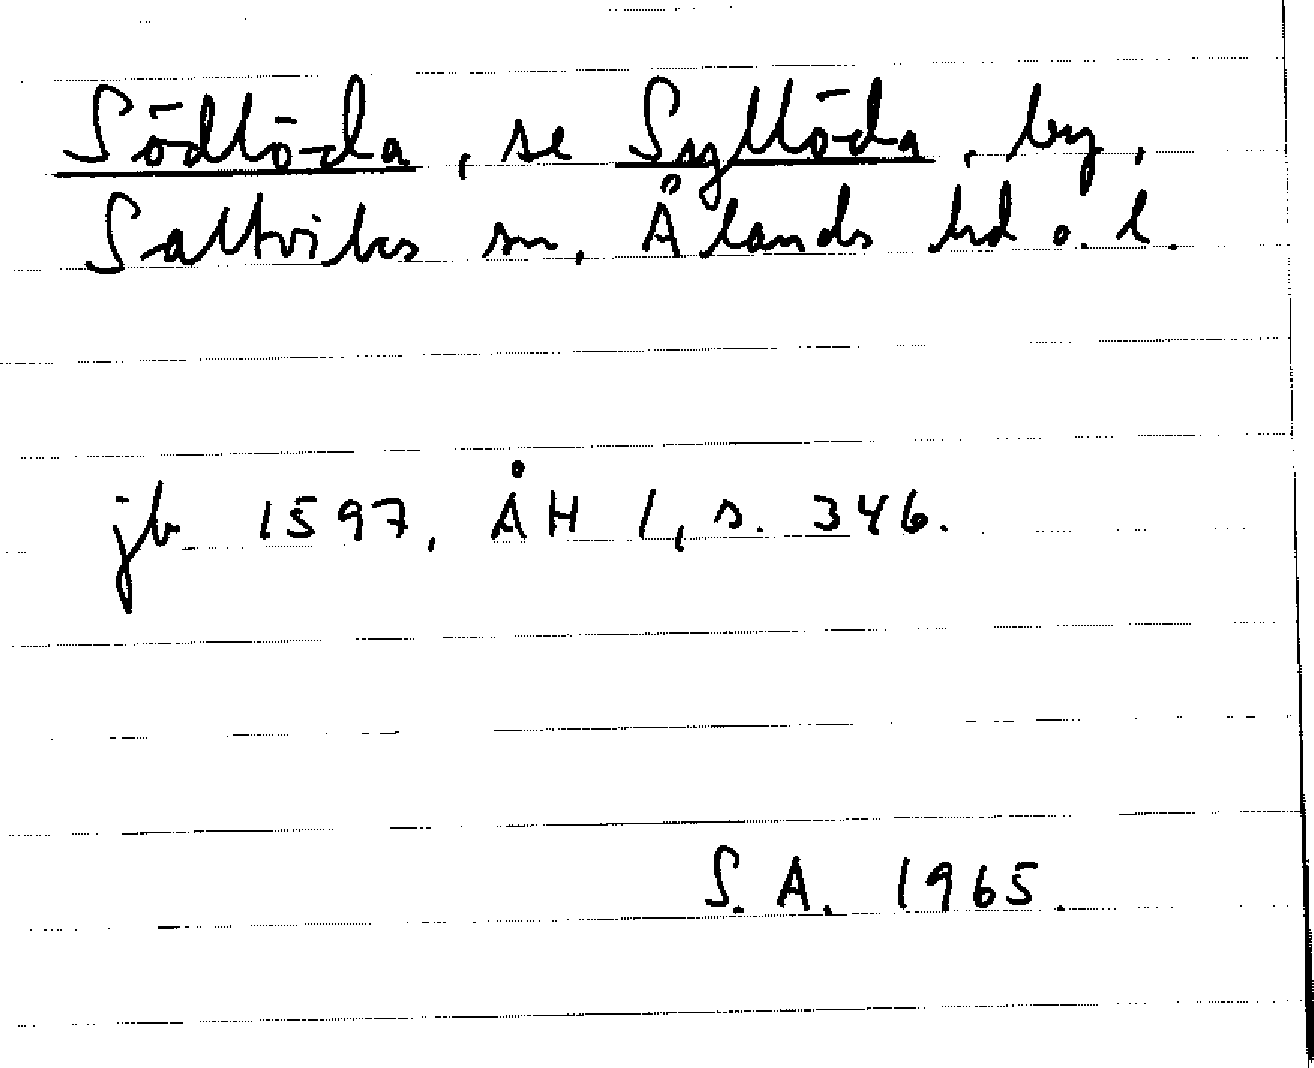 Södlöda, se Syllöda, by,
Saltviks sn, Ålands hd o. l.
jb 1597, ÅH 1, s. 346.
S. A. 1965.